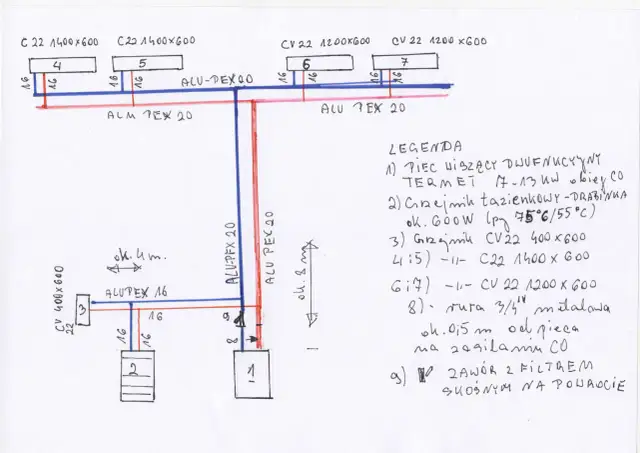 C 22 1400x600
C22 1400x600
CV22 1200x600
CV 22 1200x600
4
5
6
7
16
16
16
16
16
16
16
16
ALU-PEX 20
ALU PEX 20
ALU PEX 20
ALU-PEX 20
ALU PEX 20
ok. 4 m.
ok. 8 m
ALUPEX 16
CV 400x600
22
3
16
16
2
9
8
1
LEGENDA
1) PIEC WISZĄCY DWUFUNKCYJNY
TERMET 7-13 KW obieg CO
2) Grzejnik łazienkowy - DRABINKA
ok. 600W (py 75°C/55°C)
3) Grzejnik CV22 400x600
4 i 5) -11- C22 1400 x 600
6 i 7) -11- CV 22 1200x600
8) - rura 3/4" metalowa
ok. 0,5 m od pieca
na zasilaniu CO
9) ZAWÓR Z FILTREM
SKOŚNYM NA POWROCIE